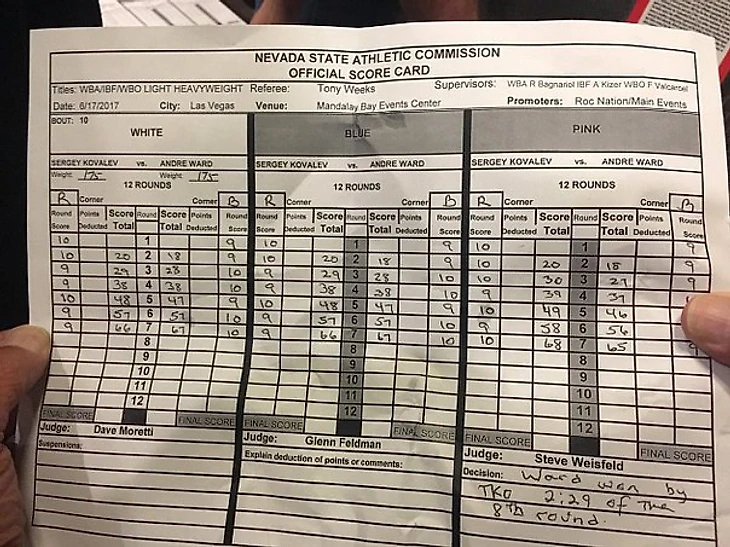 NEVADA STATE ATHLETIC COMMISSION
OFFICIAL SCORE CARD
Titles: WBA/IBF/WBO LIGHT HEAVYWEIGHT Referee: Tony Weeks Supervisors: WBA R Bagnariol IBF A Kizer WBO F Valcarcel
Date: 6/17/2017 City: Las Vegas Venue: Mandalay Bay Events Center Promoters: Roc Nation/Main Events
BOUT: 10
WHITE BLUE PINK
SERGEY KOVALEV vs. ANDRE WARD SERGEY KOVALEV vs. ANDRE WARD SERGEY KOVALEV vs. ANDRE WARD
Weight: 175 Weight: 175
12 ROUNDS 12 ROUNDS 12 ROUNDS
R Corner Corner B R Corner Corner B R Corner Corner B
Round Score Points Deducted Score Total Round Score Total Points Deducted Round Score Round Score Points Deducted Score Total Round Score Total Points Deducted Round Score Round Score Points Deducted Score Total Round Score Total Points Deducted Round Score
10 1 9 10 1 9 10 1 9
10 20 2 18 9 10 20 2 18 9 10 20 2 18 9
9 29 3 28 10 9 29 3 28 10 10 30 3 27 9
9 38 4 38 10 9 38 4 38 10 9 39 4 37
10 48 5 47 9 10 48 5 47 9 10 49 5 46
9 57 6 57 10 9 57 6 57 10 9 58 6 56
9 66 7 67 10 9 66 7 67 10 10 68 7 65 9
8 8 8
9 9 9
10 10 10
11 11 11
12 12 12
FINAL SCORE FINAL SCORE FINAL SCORE FINAL SCORE FINAL SCORE FINAL SCORE
Judge: Dave Moretti Judge: Glenn Feldman Judge: Steve Weisfeld
Suspensions: Explain deduction of points or comments: Decision: Ward won by
TKO 2:29 of the
8th round.